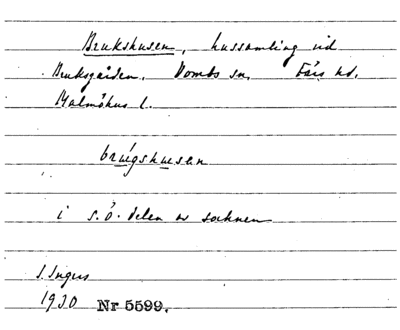 Brukshusen, hussamling vid
Bruksgården. Vombs sn, Färs hd.
Malmöhus l.
brúgshusen
i s.ö. delen av socknen
S. Ingers
1930 Nr 5599.